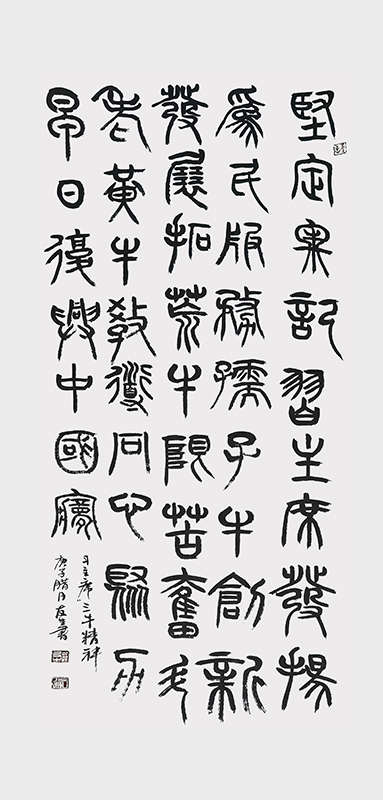 堅定牢記習主席發揚
為民服務孺子牛創新
發展拓荒牛艱苦奮斗
老黃牛教導同心聚力
早日復興中國夢
习主席三牛精神
庚子腊月友生書